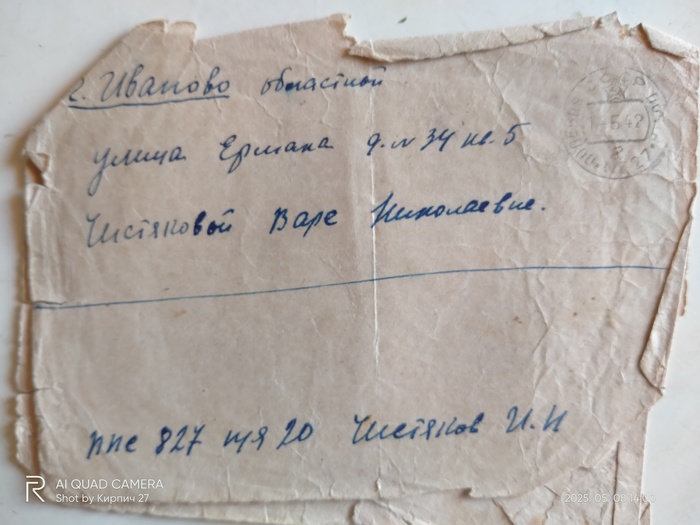 г. Иваново областной
улица Ермака д. № 34 кв. 5
Чистяковой Варе Николаевне.
ппс 827 п/я 20 Чистяков И. Н
AI QUAD CAMERA
Shot by Кирпич 27
2025.05.08